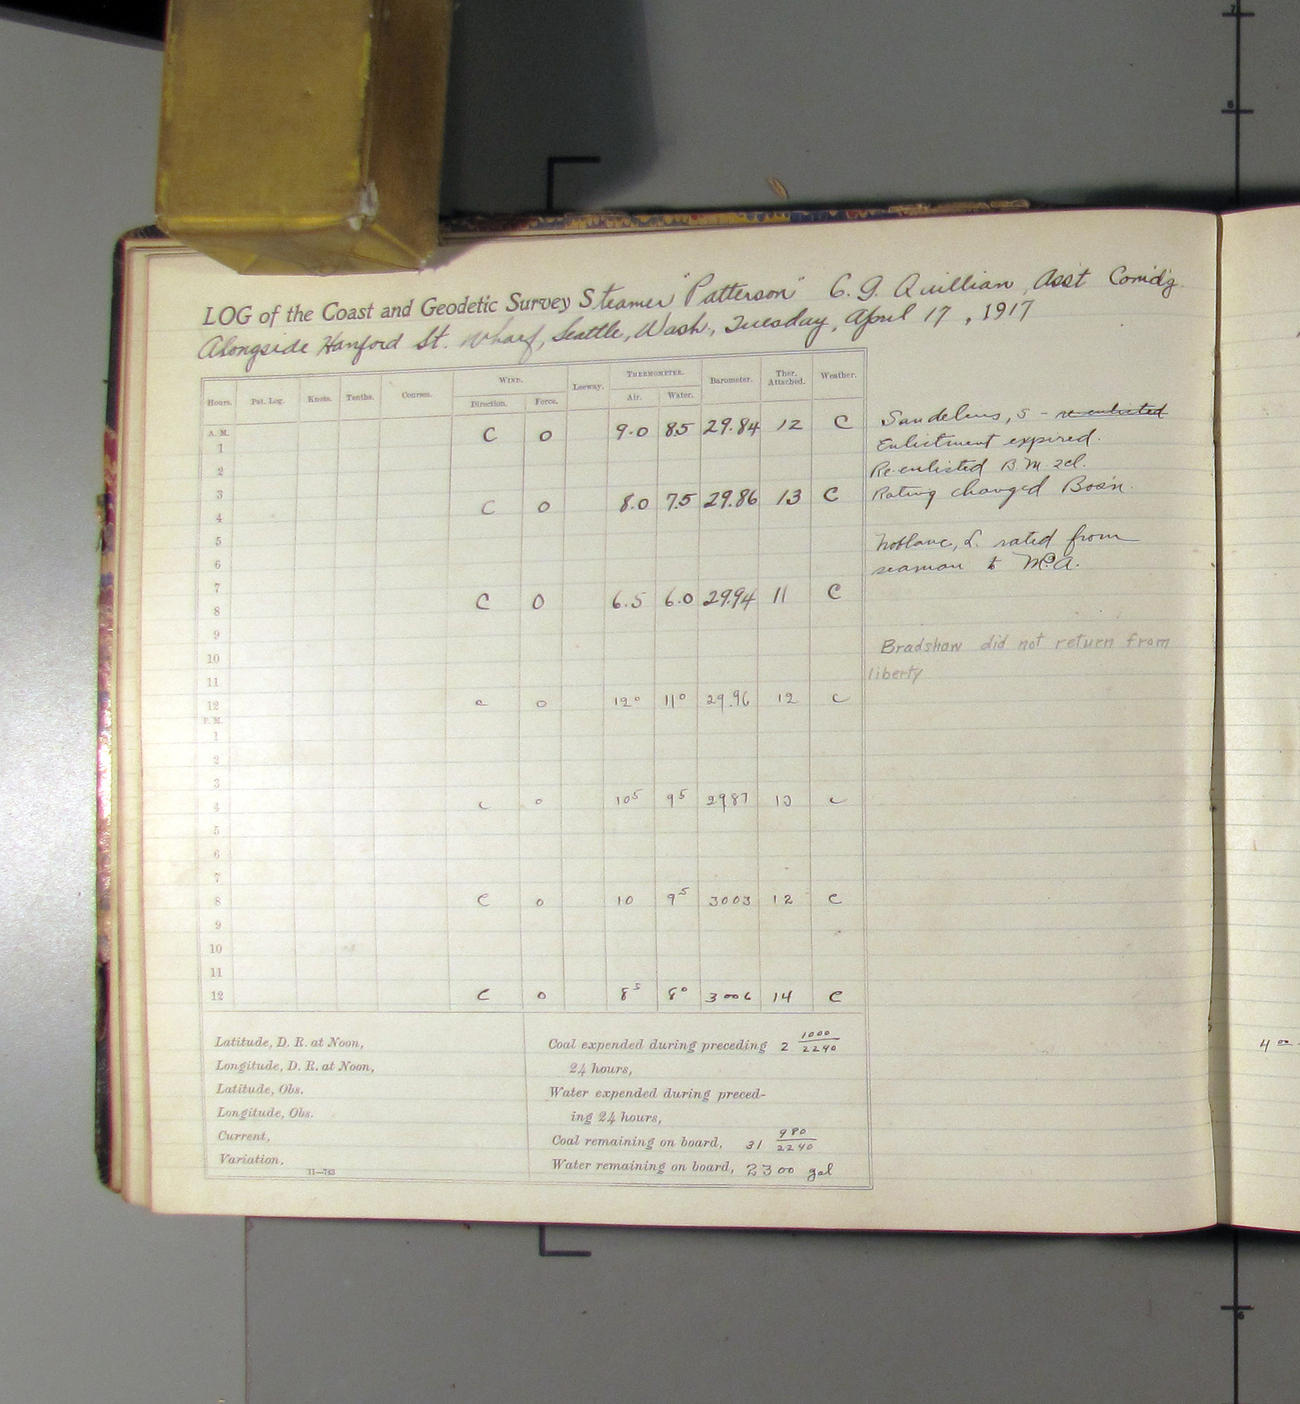 LOG of the Coast and Geodetic Survey Steamer "Patterson" C. G. Quillian, Asst Comd'g.
Alongside Hanford St. Wharf, Seattle, Wash., Tuesday, April 17, 1917
Hours. Pat. Log. Knots. Tenths. Courses. WIND. Leeway. THERMOMETER. Barometer. Ther. Attached. Weather.
Direction. Force. Air. Water.
A. M.
1 C 0 9.0 8.5 29.84 12 C
2
3
4 C 0 8.0 7.5 29.86 13 C
5
6
7
8 C 0 6.5 6.0 29.94 11 C
9
10
11
12 C 0 12° 11° 29.96 12 C
P. M.
1
2
3
4 C 0 10⁵ 9⁵ 2987 13 C
5
6
7
8 C 0 10 9⁵ 3003 12 C
9
10
11
12 C 0 8⁵ 8° 3006 14 C
S - re-enlisted
Enlistment expired.
Re-enlisted B M 2cl.
Rating changed Bos'n.
L. rated from
seaman to
Bradshaw did not return from
liberty
Latitude, D. R. at Noon,
Longitude, D. R. at Noon,
Latitude, Obs.
Longitude, Obs.
Current,
Variation,
11—783
Coal expended during preceding 2 1000/2240
24 hours,
Water expended during preced-
ing 24 hours,
Coal remaining on board, 31 980/2240
Water remaining on board, 2300 gal
4 00